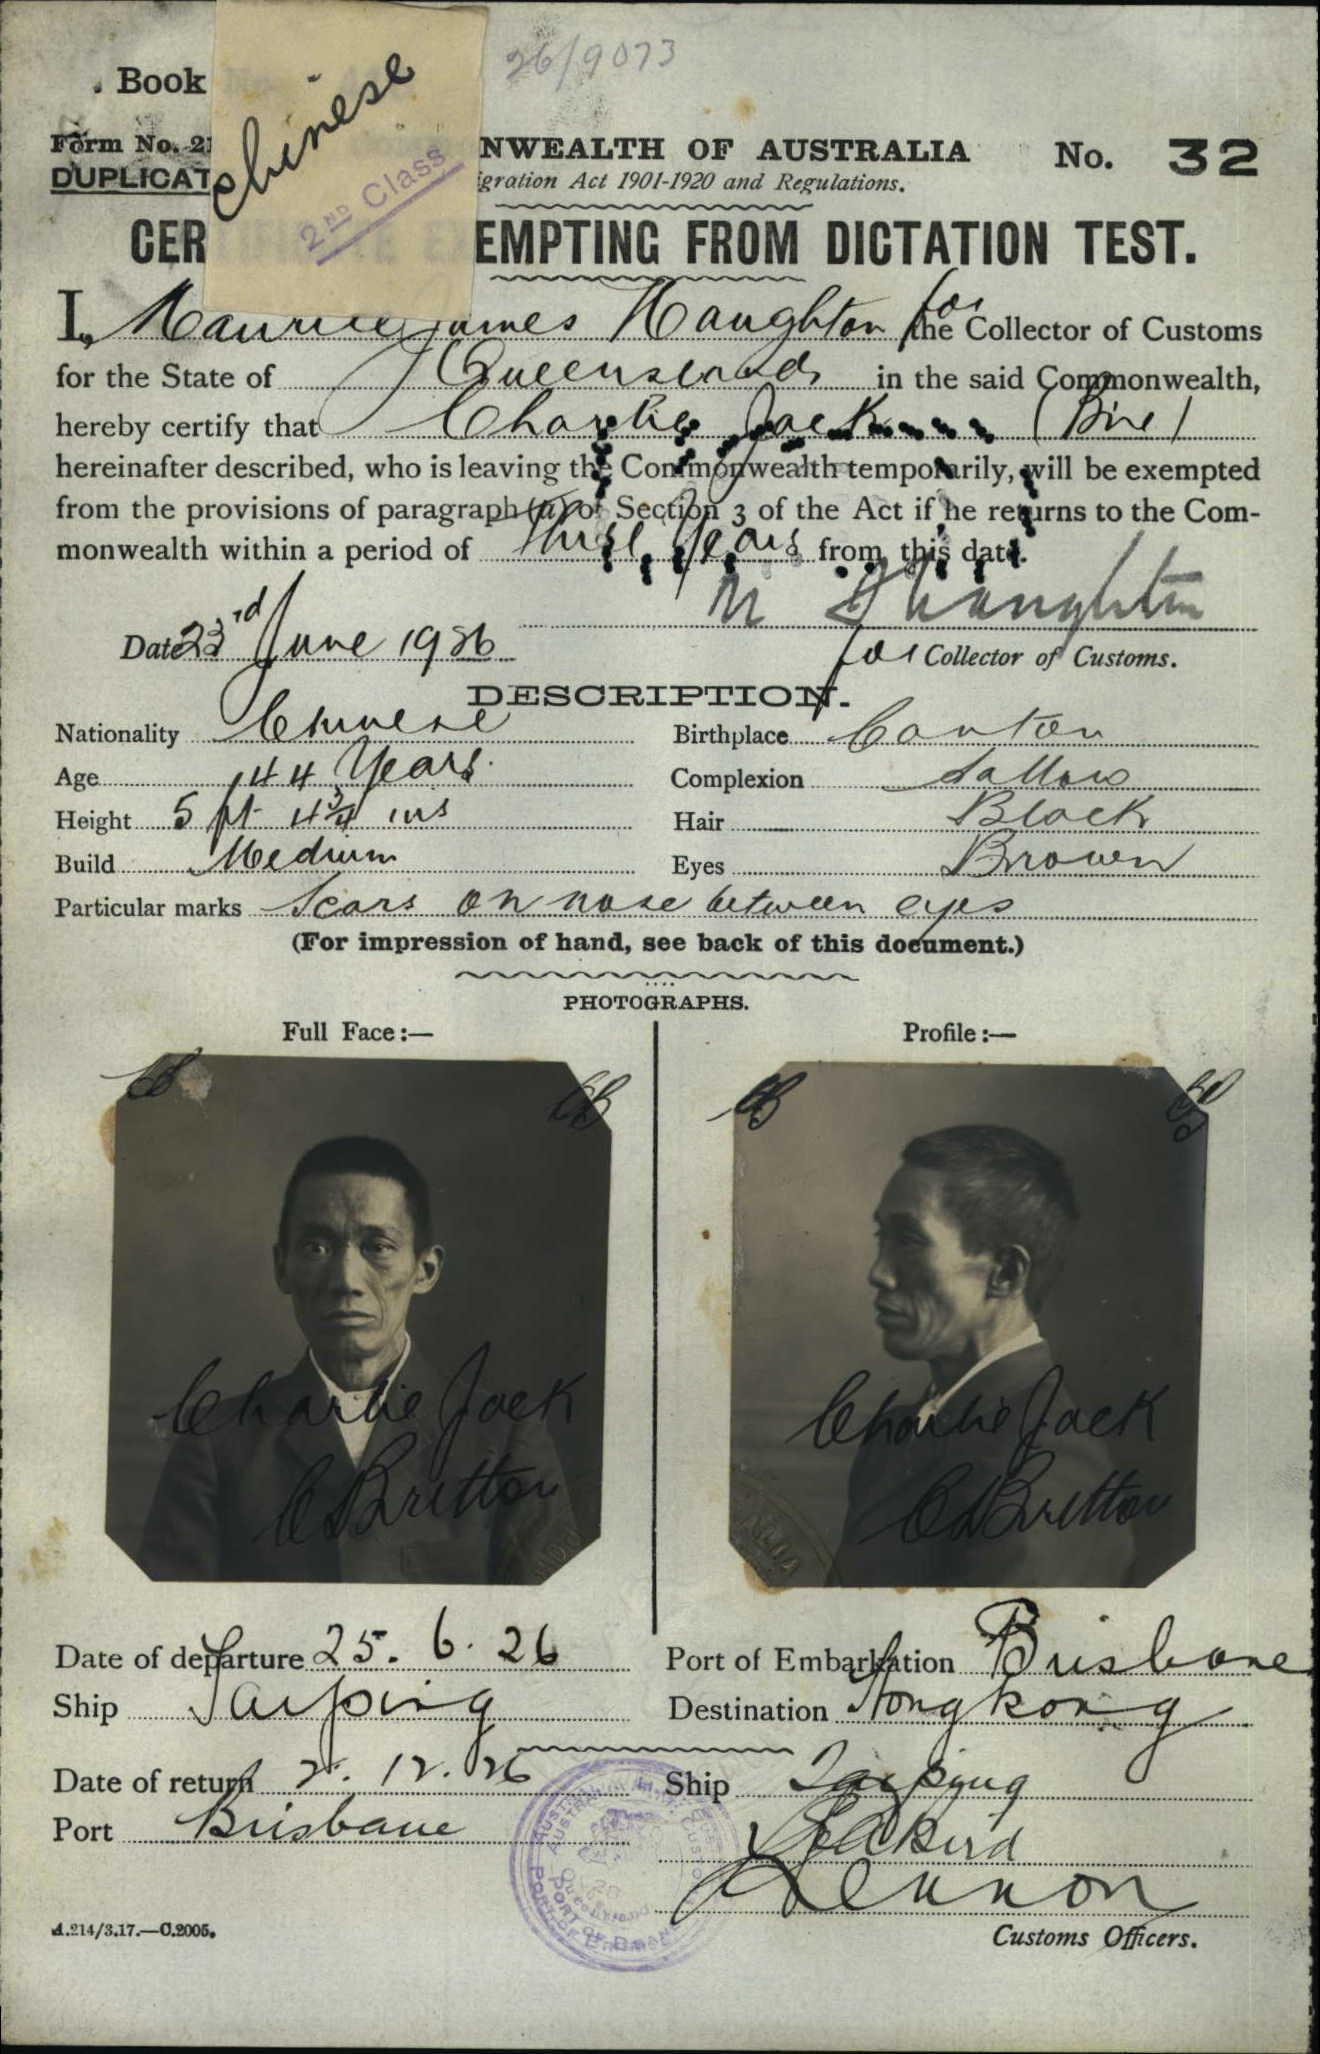 26/9073
Book
Chinese
2ND Class
Form No. 21
DUPLICAT
NWEALTH OF AUSTRALIA
No. 32
igration Act 1901-1920 and Regulations.
CERTIFICATE EXEMPTING FROM DICTATION TEST.
I, Maurice James Naughton for the Collector of Customs
for the State of Queensland in the said Commonwealth,
hereby certify that Charlie Jack
hereinafter described, who is leaving the Commonwealth temporarily, will be exempted
from the provisions of paragraph (a) of Section 3 of the Act if he returns to the Com-
monwealth within a period of three years from this date.
Naughton
Date 23rd June 1926
for Collector of Customs.
DESCRIPTION.
Nationality Chinese
Birthplace Canton
Age 44 Years
Complexion Sallow
Height 5 ft 4 3/4 ins
Hair Black
Build Medium
Eyes Brown
Particular marks Scars on nose between eyes
(For impression of hand, see back of this document.)
PHOTOGRAPHS.
Full Face:—
Profile:—
CB
CB
CB
CB
Charlie Jack
C Britton
Charlie Jack
C Britton
Date of departure 25. 6. 26
Port of Embarkation Brisbane
Ship Taiping
Destination Hongkong
Date of return 2. 12. 26
Ship Taiping
Port Brisbane
Bird
Lennon
A.214/3.17.—C.2005.
Customs Officers.